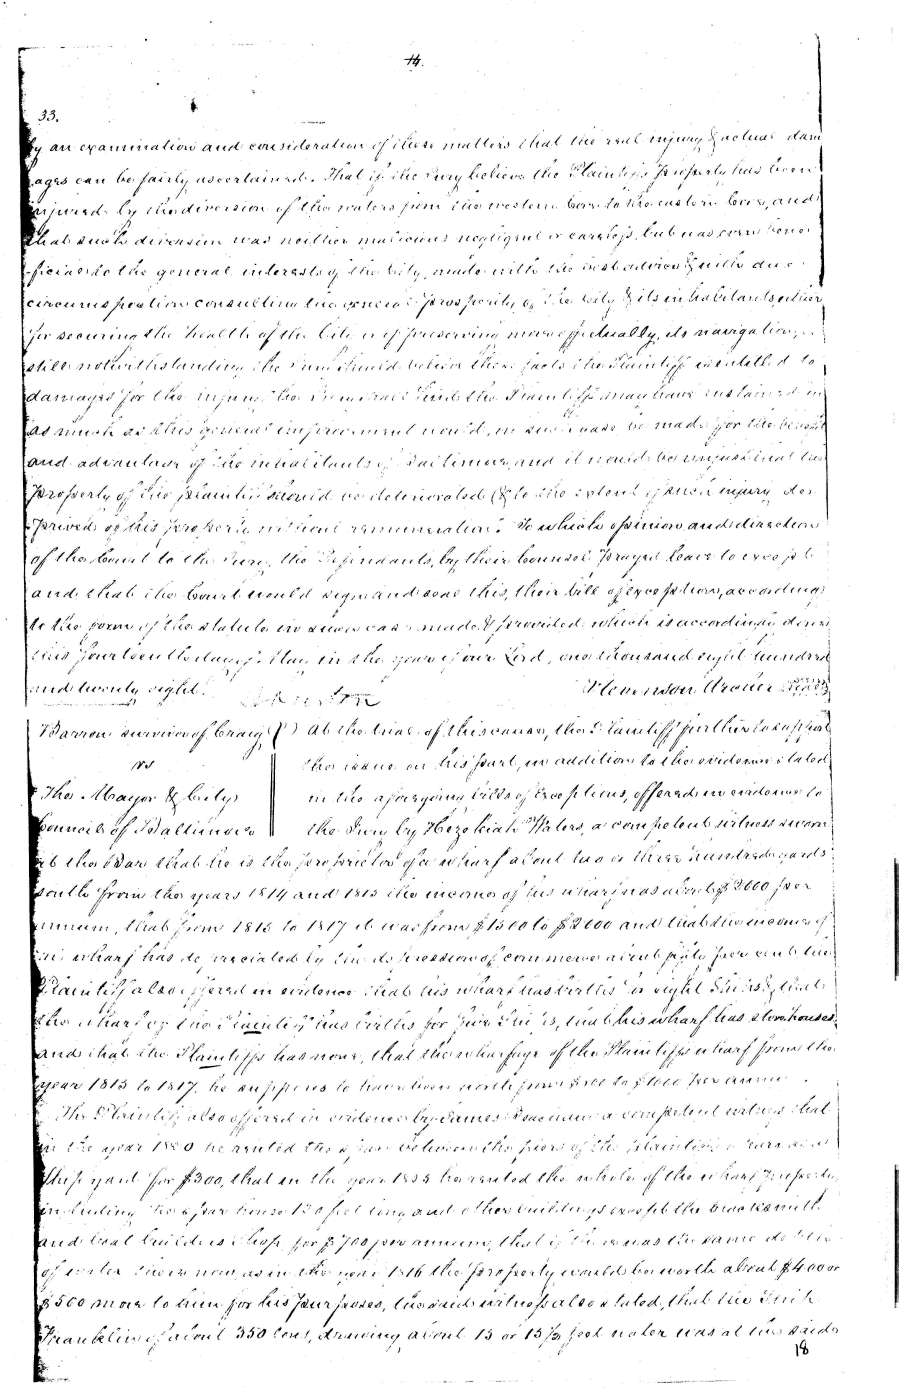 14.
33.
by an examination and consideration of these matters that the real injury & actual dam
ages can be fairly ascertained. That if the Jury believe the Plaintiffs Property has been
injured by the diversion of the waters from the western bore to the eastern bore, and
that such diversion was neither malicious negligent or careless, but was even bene
-ficial to the general interests of the City, made with the best advice & with due
circumspection consulting the general prosperity of the City & its inhabitants either
for securing the health of the City or of preserving more effectually, its navigation,
still notwithstanding the Jury should believe these facts the Plaintiff is entitled to
damages for the injury the Jury shall find the Plaintiff may have sustained in
as much as this general improvement would, in such case be made for the benefit
and advantage of the inhabitants of Baltimore, and it would be unjust that the
property of the plaintiff should be deteriorated (& to the extent of such injury de
prived of his property without remuneration. To which opinion and direction
of the Court to the Jury, the Defendants, by their Counsel prayed leave to except
and that the Court would sign and seal this, their bill of exception, according
to the form of the statute in such case made & provided which is accordingly done
this fourteenth day of May in the year of our Lord, one thousand eight hundred
and twenty eight.
Stevenson Archer
Barron survivor of Craig
vs
The Mayor & City
Council of Baltimore
At the trial of this cause, the Plaintiff further to support
the issue on his part, in addition to the evidence stated
in the aforegoing bills of Exceptions, offered in evidence to
the Jury by Hezekiah Waters, a competent witness sworn
at the Bar that he is the proprietor of a wharf about two or three hundred yards
south from the years 1814 and 1815 the income of his wharf was about $2000 per
annum, that from 1815 to 1817 it was from $1500 to $2000 and that the income of
his wharf has depreciated by the depression of commerce about fifty per cent the
Plaintiff also offered in evidence that his wharf has births for eight Ships, & that
the wharf of the Plaintiff has births for five Ships, that his wharf has storehouses
and that the Plaintiffs has none, that the wharfage of the Plaintiffs wharf from the
year 1815 to 1817. he supposes to have been worth from $ to $1000 per annum.
The Plaintiff also offered in evidence by James Beacham a competent witness that
in the year 1820 he rented the space between the piers of the plaintiffs wharf as a
Ship yard for $300, that in the year he rented the whole of the wharf property
including the spar house 120 feet long and other buildings except the blacksmith
and boat builders shops for $700 per annum, that if there was the same depth
of water there now as in the year 1816 the property would be worth about $400 or
$500 more to him for his purposes, the said witness also stated, that the Ship
Franklin of about 350 tons, drawing about 15 or 15½ feet water was at the said
18